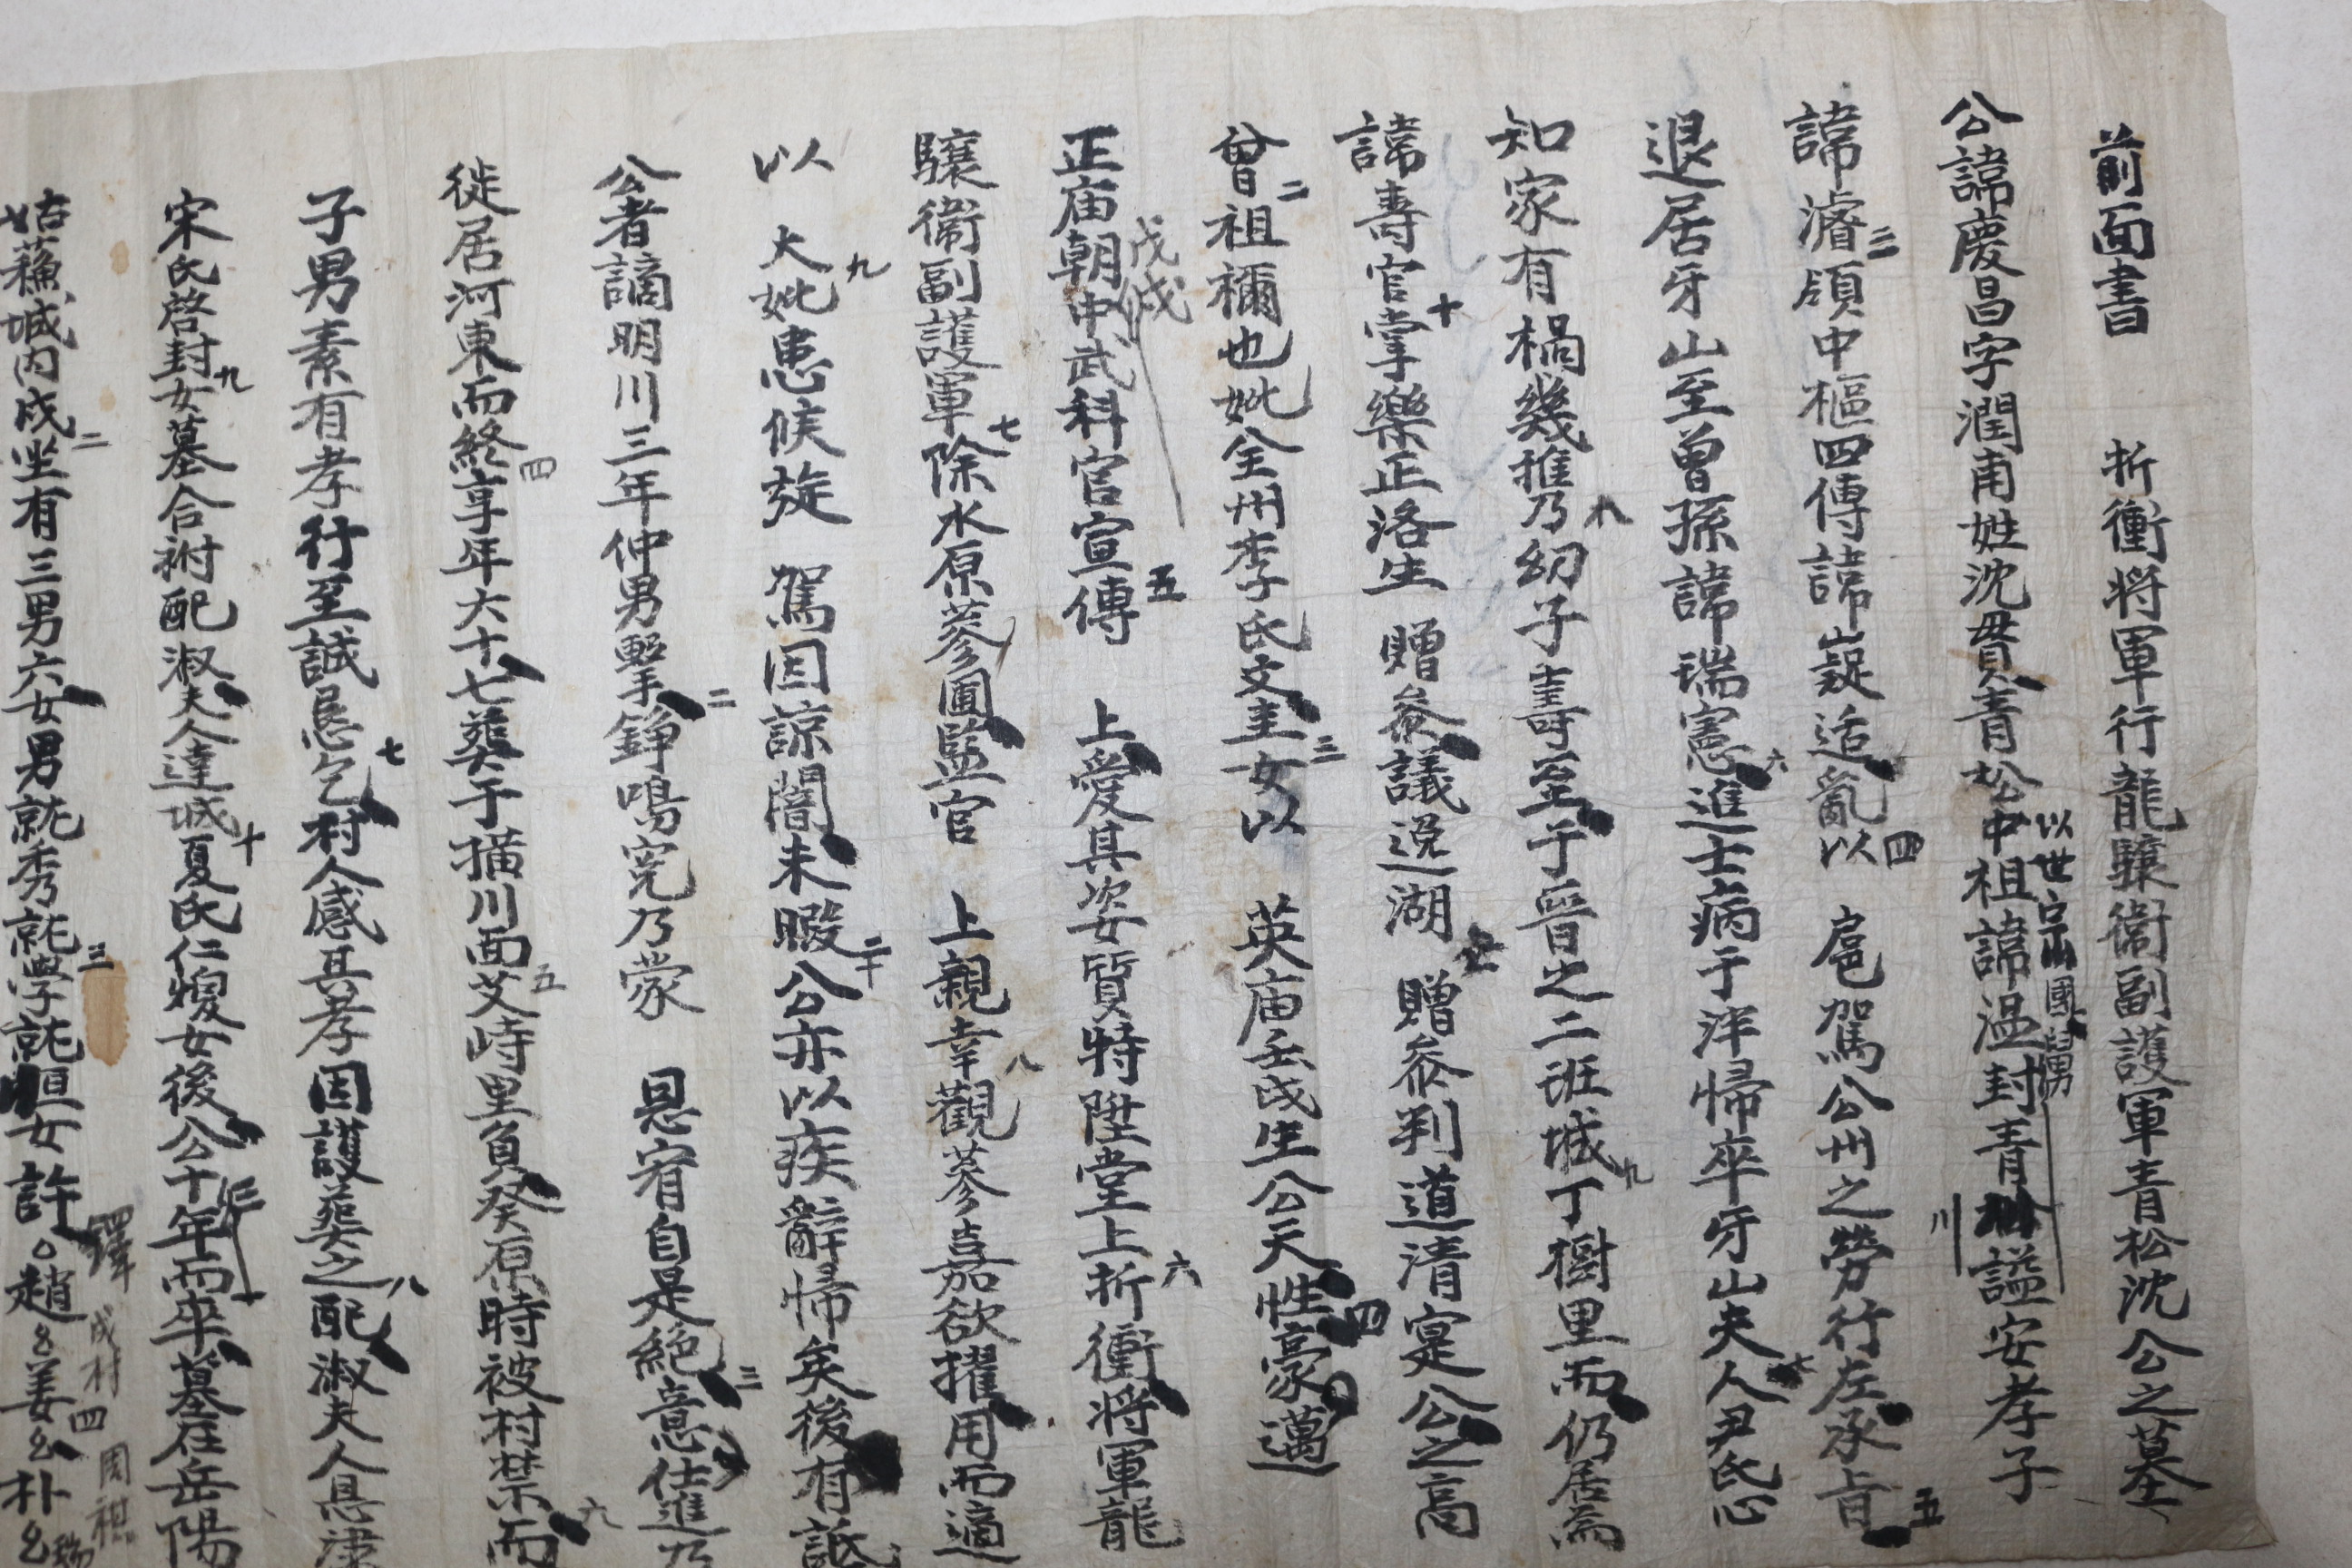 前面書 折衝将軍行龍驤衛副護軍青松沈公之墓
公諱慶昌字潤甫姓沈貫青松中祖諱温封青 謚安孝子
以世宗國舅
諱濬領中樞四傳諱嶷适亂以 扈駕公州之勞行左承旨
退居牙山至曾孫諱瑞憲進士病于泮帰卒牙山夫人尹氏心
知家有禍幾推乃幼子壽至于晉之二班城丁樹里而仍居焉
諱壽官掌樂正洛生 贈叅議逸湖 贈叅判道清寔公之高
曾祖禰也妣全州李氏文圭女以 英庙壬戌生公天性豪邁
正庙朝中武科官宣傳 上愛其姿質特陞堂上折衝将軍龍
戊戌
驤衛副護軍除水原蔘圃監官 上親幸觀蔘嘉欲擢用而適
以 大妣患候旋 駕因諒闇未暇公亦以疾辭帰矣後有詆
公者謫明川三年仲男擊錚鳴寃乃蒙 恩宥自是絶意仕進乃
徙居河東而終享年六十七葬于横川面艾峙里負癸原時被村禁而
子男素有孝行至誠恳乞村人感其孝因護葬之配淑夫人恳津
宋氏啓封女墓合祔配淑夫人達城夏氏仁馥女後公十年而卒墓在岳陽
姑蘓城内戌坐有三男六女男就秀就學就恒女許 趙 姜 朴
鐸 成村 四 周祺